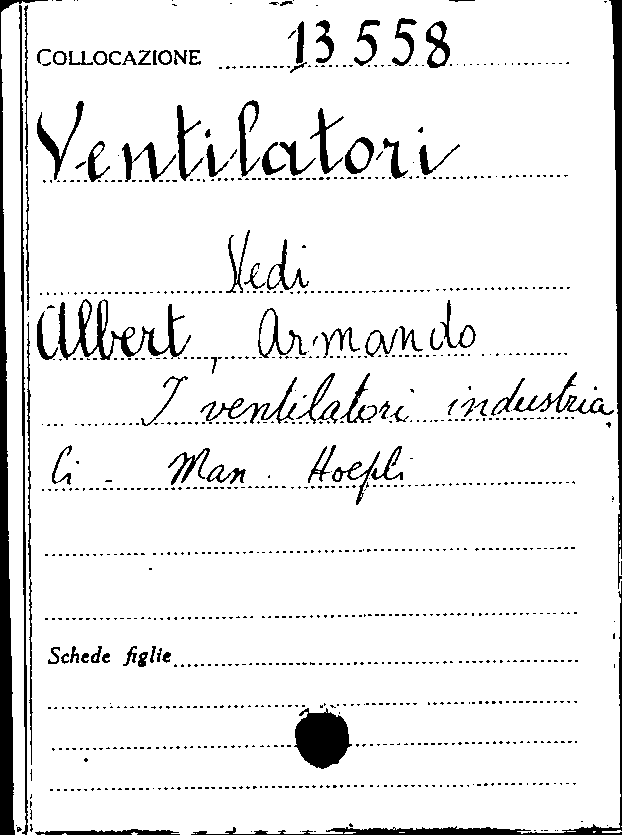 COLLOCAZIONE 13558
Ventilatori
Vedi
Albert, Armando
I ventilatori industria
li - Man. Hoepli
Schede figlie